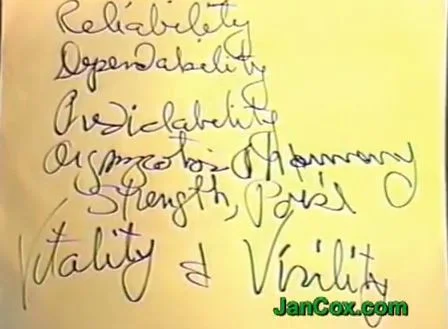 Reliability
Dependability
Predictability
Organization & Harmony
Strength, Poise
Vitality & Virility
JanCox.com